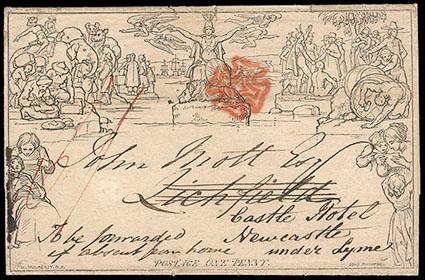 John Mott Esq
Lichfield
Castle Hotel
To be forwarded Newcastle
if absent from home under Lyme
POSTAGE ONE PENNY.
W. MULREADY, R.A.
JOHN THOMPSON